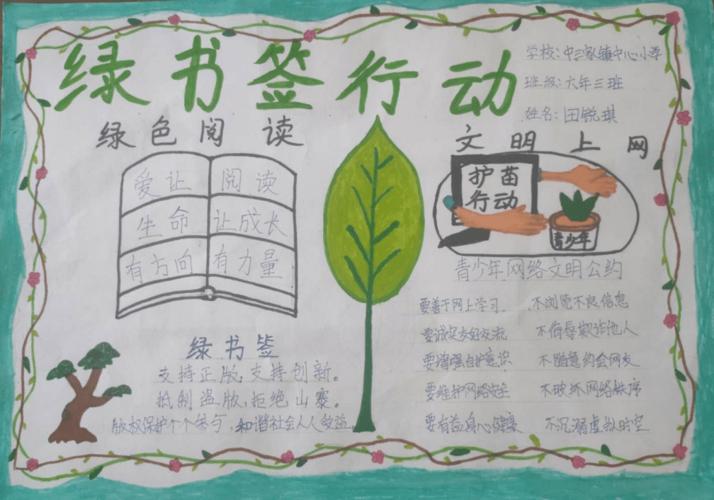 绿书签行动
学校:中三家镇中心小学
班级:六年三班
姓名:田锐琪
绿色阅读
爱让 阅读
生命 让成长
有方向 有力量
绿书签
支持正版,支持创新。
抵制盗版,拒绝山寨。
版权保护个个参与,和谐社会人人受益
文明上网
护苗
行动
青少年
青少年网络文明公约
要善于网上学习 不浏览不良信息
要诚实友好交流 不侮辱欺诈他人
要增强自护意识 不随意约会网友
要维护网络安全 不破坏网络秩序
要有益身心健康 不沉溺虚拟时空